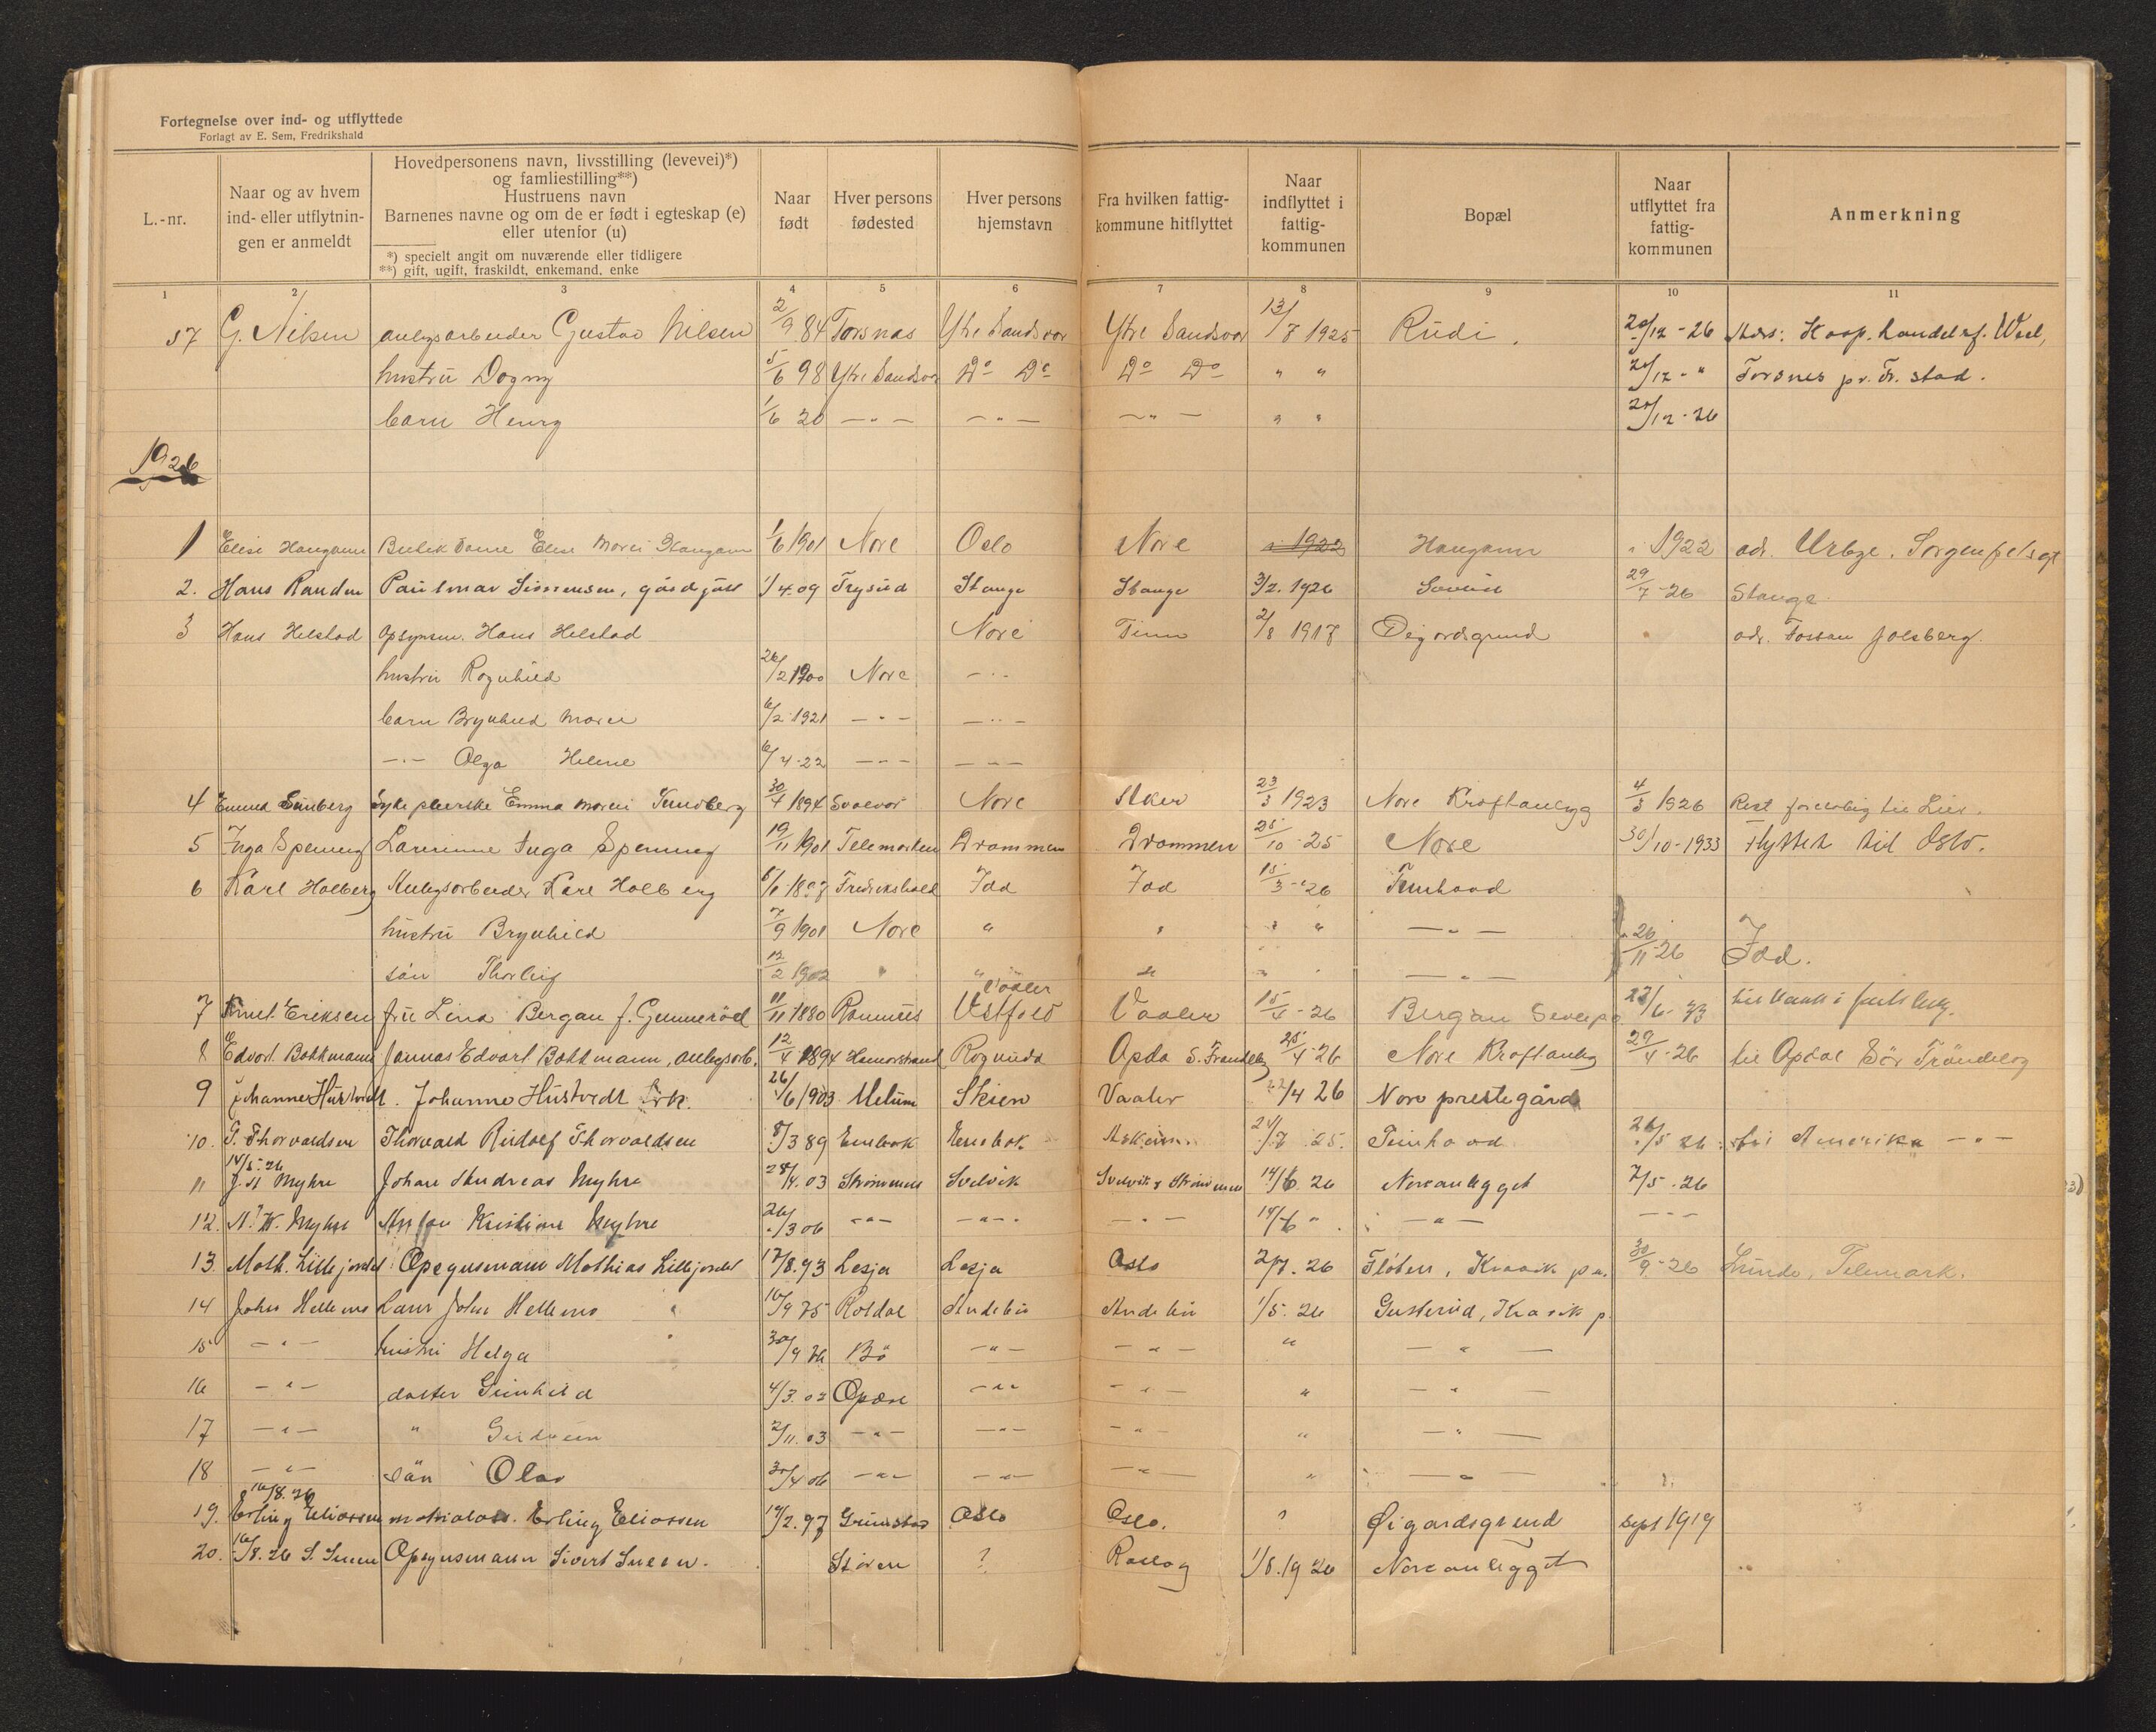 Fortegnelse over ind- og utflyttede
Forlagt av E. Sem, Fredrikshald
L.-nr.
Naar og av hvem
ind- eller utflytnin-
gen er anmeldt
Hovedpersonens navn, livsstilling (levevei)*)
og famliestilling**)
Hustruens navn
Barnenes navne og om de er født i egteskap (e)
eller utenfor (u)
*) specielt angit om nuværende eller tidligere
**) gift, ugift, fraskildt, enkemand, enke
Naar
født
Hver persons
fødested
Hver persons
hjemstavn
Fra hvilken fattig-
kommune hitflyttet
Naar
indflyttet i
fattig-
kommunen
Bopæl
Naar
utflyttet fra
fattig-
kommunen
Anmerkning
1 2 3 4 5 6 7 8 9 10 11
57 G. Nilsen anlegsarbeider Gustav Nilsen 2/9 84 Torsnas Ytre Sandsvær Ytre Sandsvær 13/8 1925 Rudi. 20/12 - 26 Adrs: Koop. handelsf. Weel,
hustru Dagny 5/6 98 Ytre Sandsvær Do Do Do Do " " 20/12 - " Torsnes pr. Fr. stad.
barn Henry 1/6 20 — " — — " — — " — " " 20/12 - 26
1926
1 Elise Haugann Elise Maren Haugann 1/6 1901 Nore Oslo Nore i 1922 Haugann i 1922 adr.
2. Hans Randen Simensen, 1/4.09 Trysild Stange Stange 3/2. 1926 29/7 - 26 Stange
3 Hans Helstad Opsynsm. Hans Helstad Nore Tinn 2/8 1917 Øigardsgrend adr. Fossan
hustru Ragnhild 26/2 1900 Nore — " —
barn Brynhild Maren 6/2 1921 — " — — " —
— " — Olga Helene 6/4 - 22 — " — — " —
4 Emma Sundberg Sykepleierske Emma Maren Sundberg 30/7 1894 Svolvær Nore Aker 23/3 1923 Nore Kraftanlegg 4/3 1926 Reist foreløbig til Lier.
5 Inga Spenning Lærerinne Inga Spenning 19/11 1901 Telemarken Drammen Drammen 25/10 - 25 Nore 30/10 - 1933 Flyttet til Oslo.
6 Karl Holberg Anlegsarbeider Karl Holberg Fredrikshald Idd Idd 15/3 - 26 Tunhovd
hustru Brynhild 7/9 1901 Nore " " " " — " — 26/11 - 26 Idd.
søn Thorleif 12/2 1902 " " " " " — " —
7 Knut Eriksen fru Lina Bergan f. Gunnerød 11/11 1880 Ramnes Vestfold Våler Vaaler 15/4 - 26 Bergan 27/6 - 33
8 Edvart Bakkmann Jannas Edvart Bakkmann, anlegsarb. 12/4 1894 Rognida Opda S. Trøndelag 25/4 - 26 Nore Kraftanleg 29/4 - 26 til Opdal Sör Tröndelag
9 Johanne Hustvedt. Johanne Hustvedt frk. 26/6 1903 Melum Skien Vaaler 22/4 26 Nore prestegård
10. T. Thorvaldsen Thorvald Rudolf Thorvaldsen 8/3 89 Enebak Enebak Askim 24/7 25. Tunhovd 26/5 26 til Amerika — " —
14/5 - 26
11 J. A Myhre Johan Andreas Myhre 28/4. 03 Strömmen Svelvik Svelvik & Strömmen 14/6. 26 Noreanlegget 7/5 - 26
12. A. K. Myhre Kristine Myhre 26/3 06 — " — — " — — " — 14/6 " — " — — " —
13. Math. Lillejordet Opsynsmann Mathias Lillejordet 17/8. 93 Lesja Lesja Oslo 2/7. 26 Fløten, Kravik p.a. 30/9 - 26 Lunde, Telemark.
14 John Hellemo John Hellemo 16/9 75 Røldal Andebu Andebu 1/5. 26 Gusterud, Kravik p.
15 — " — hustru Helga 30/9 76 Bö — " — — " — " — " —
16 — " — datter Gunhild 4/3. 02 Opdal — " — — " — " — " —
17 — " — " Gudveen 2/11. 03 — " — — " — — " — " — " —
18 — " — sön Olav 30/4 06 — " — — " — — " — " — " —
16/8. 26
19. Erling Eliassen Erling Eliassen 14/2. 97 Grimstad Oslo Oslo. ? Øigardsgrend sept 1919
20. 16/8. 26 S. Sneen Opsynsmann Sivert Sneen. Støren ? 1/8. 1926 Noreanlegget